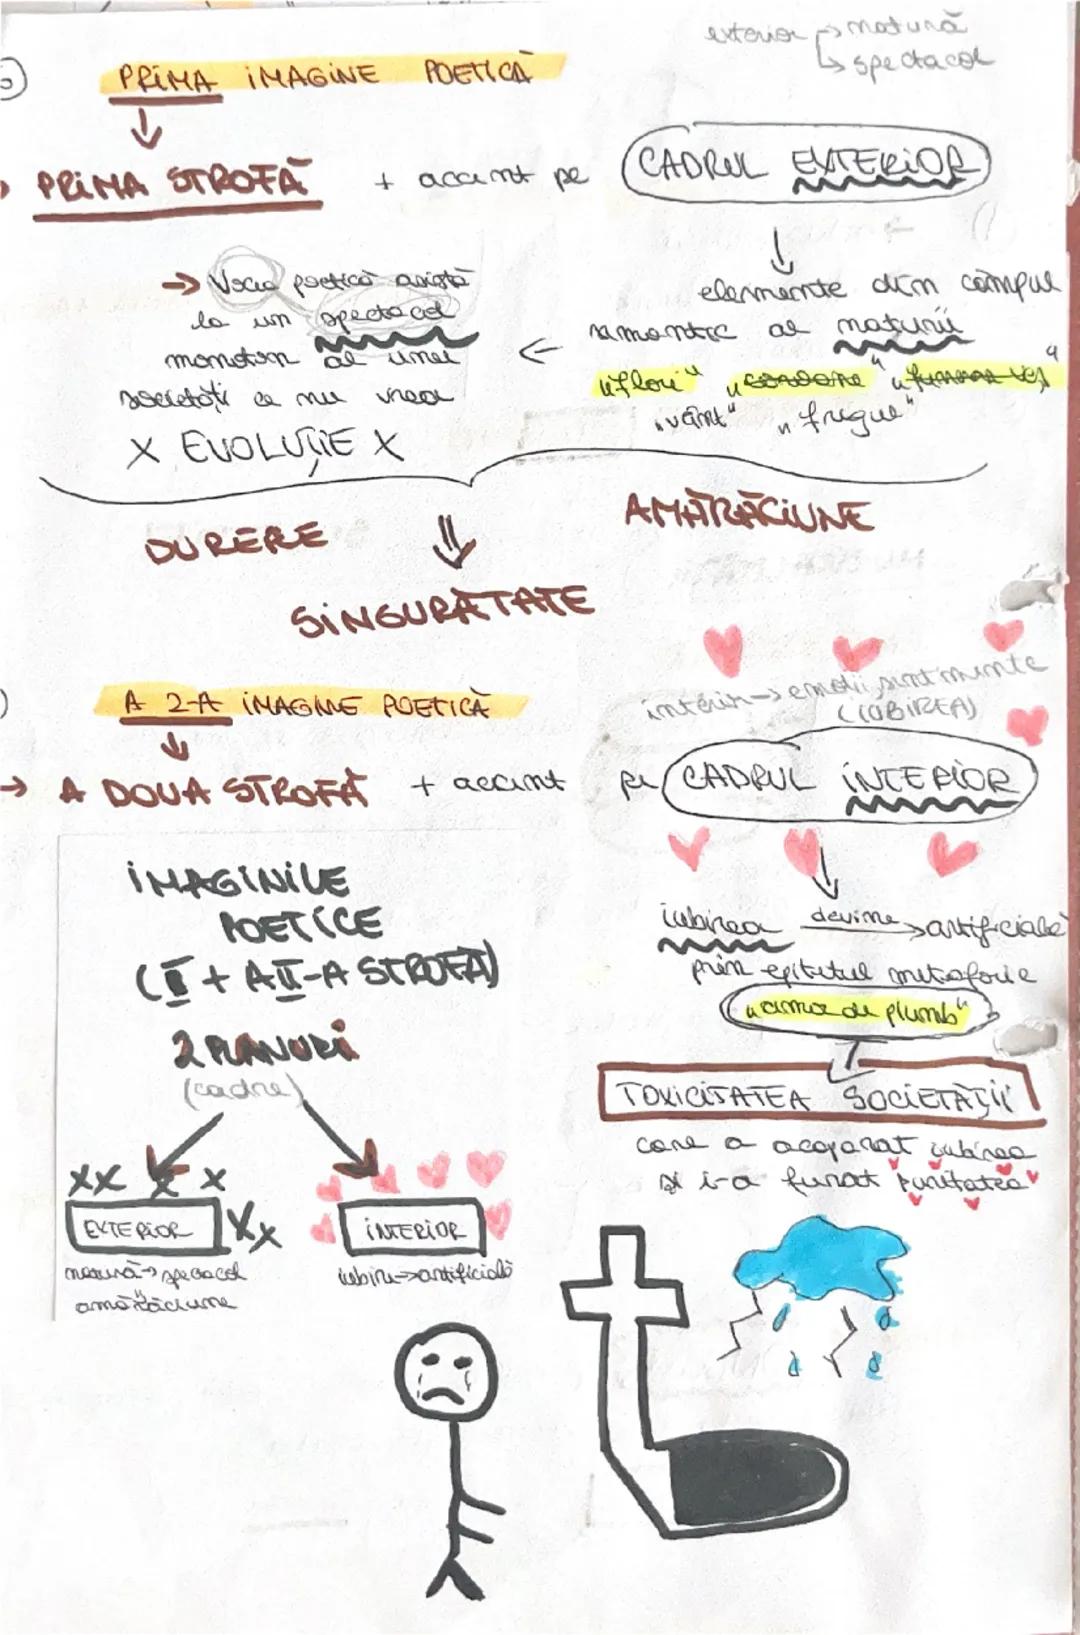 exterior → natură
↳ spectacol
PRIMA IMAGINE POETICĂ
PRIMA STROFĂ + accent pe CADRUL EXTERIOR
→ Vocea poetică asistă
la un spectacol
monoton al unei
societăți ce nu vrea
X EVOLUȚIE X
elemente din câmpul
semantic al naturii
"flori" "coroane" "funerar veș"
"vânt" "frigue"
DURERE
AMĂRĂCIUNE
SINGURĂTATE
A 2-A IMAGINE POETICĂ
interior → emoții, sentimente
(IUBIREA)
→ A DOUA STROFĂ + accent pe CADRUL INTERIOR
IMAGINILE
POETICE
(I + A II-A STROFĂ)
2 PLANURI
(cadre)
EXTERIOR
natură → spectacol
amărăciune
INTERIOR
iubire → artificială
iubirea devine → artificială
prin epitetul metaforic
"amor de plumb"
TOXICITATEA SOCIETĂȚII
care a acaparat iubirea
și i-a furat puritatea